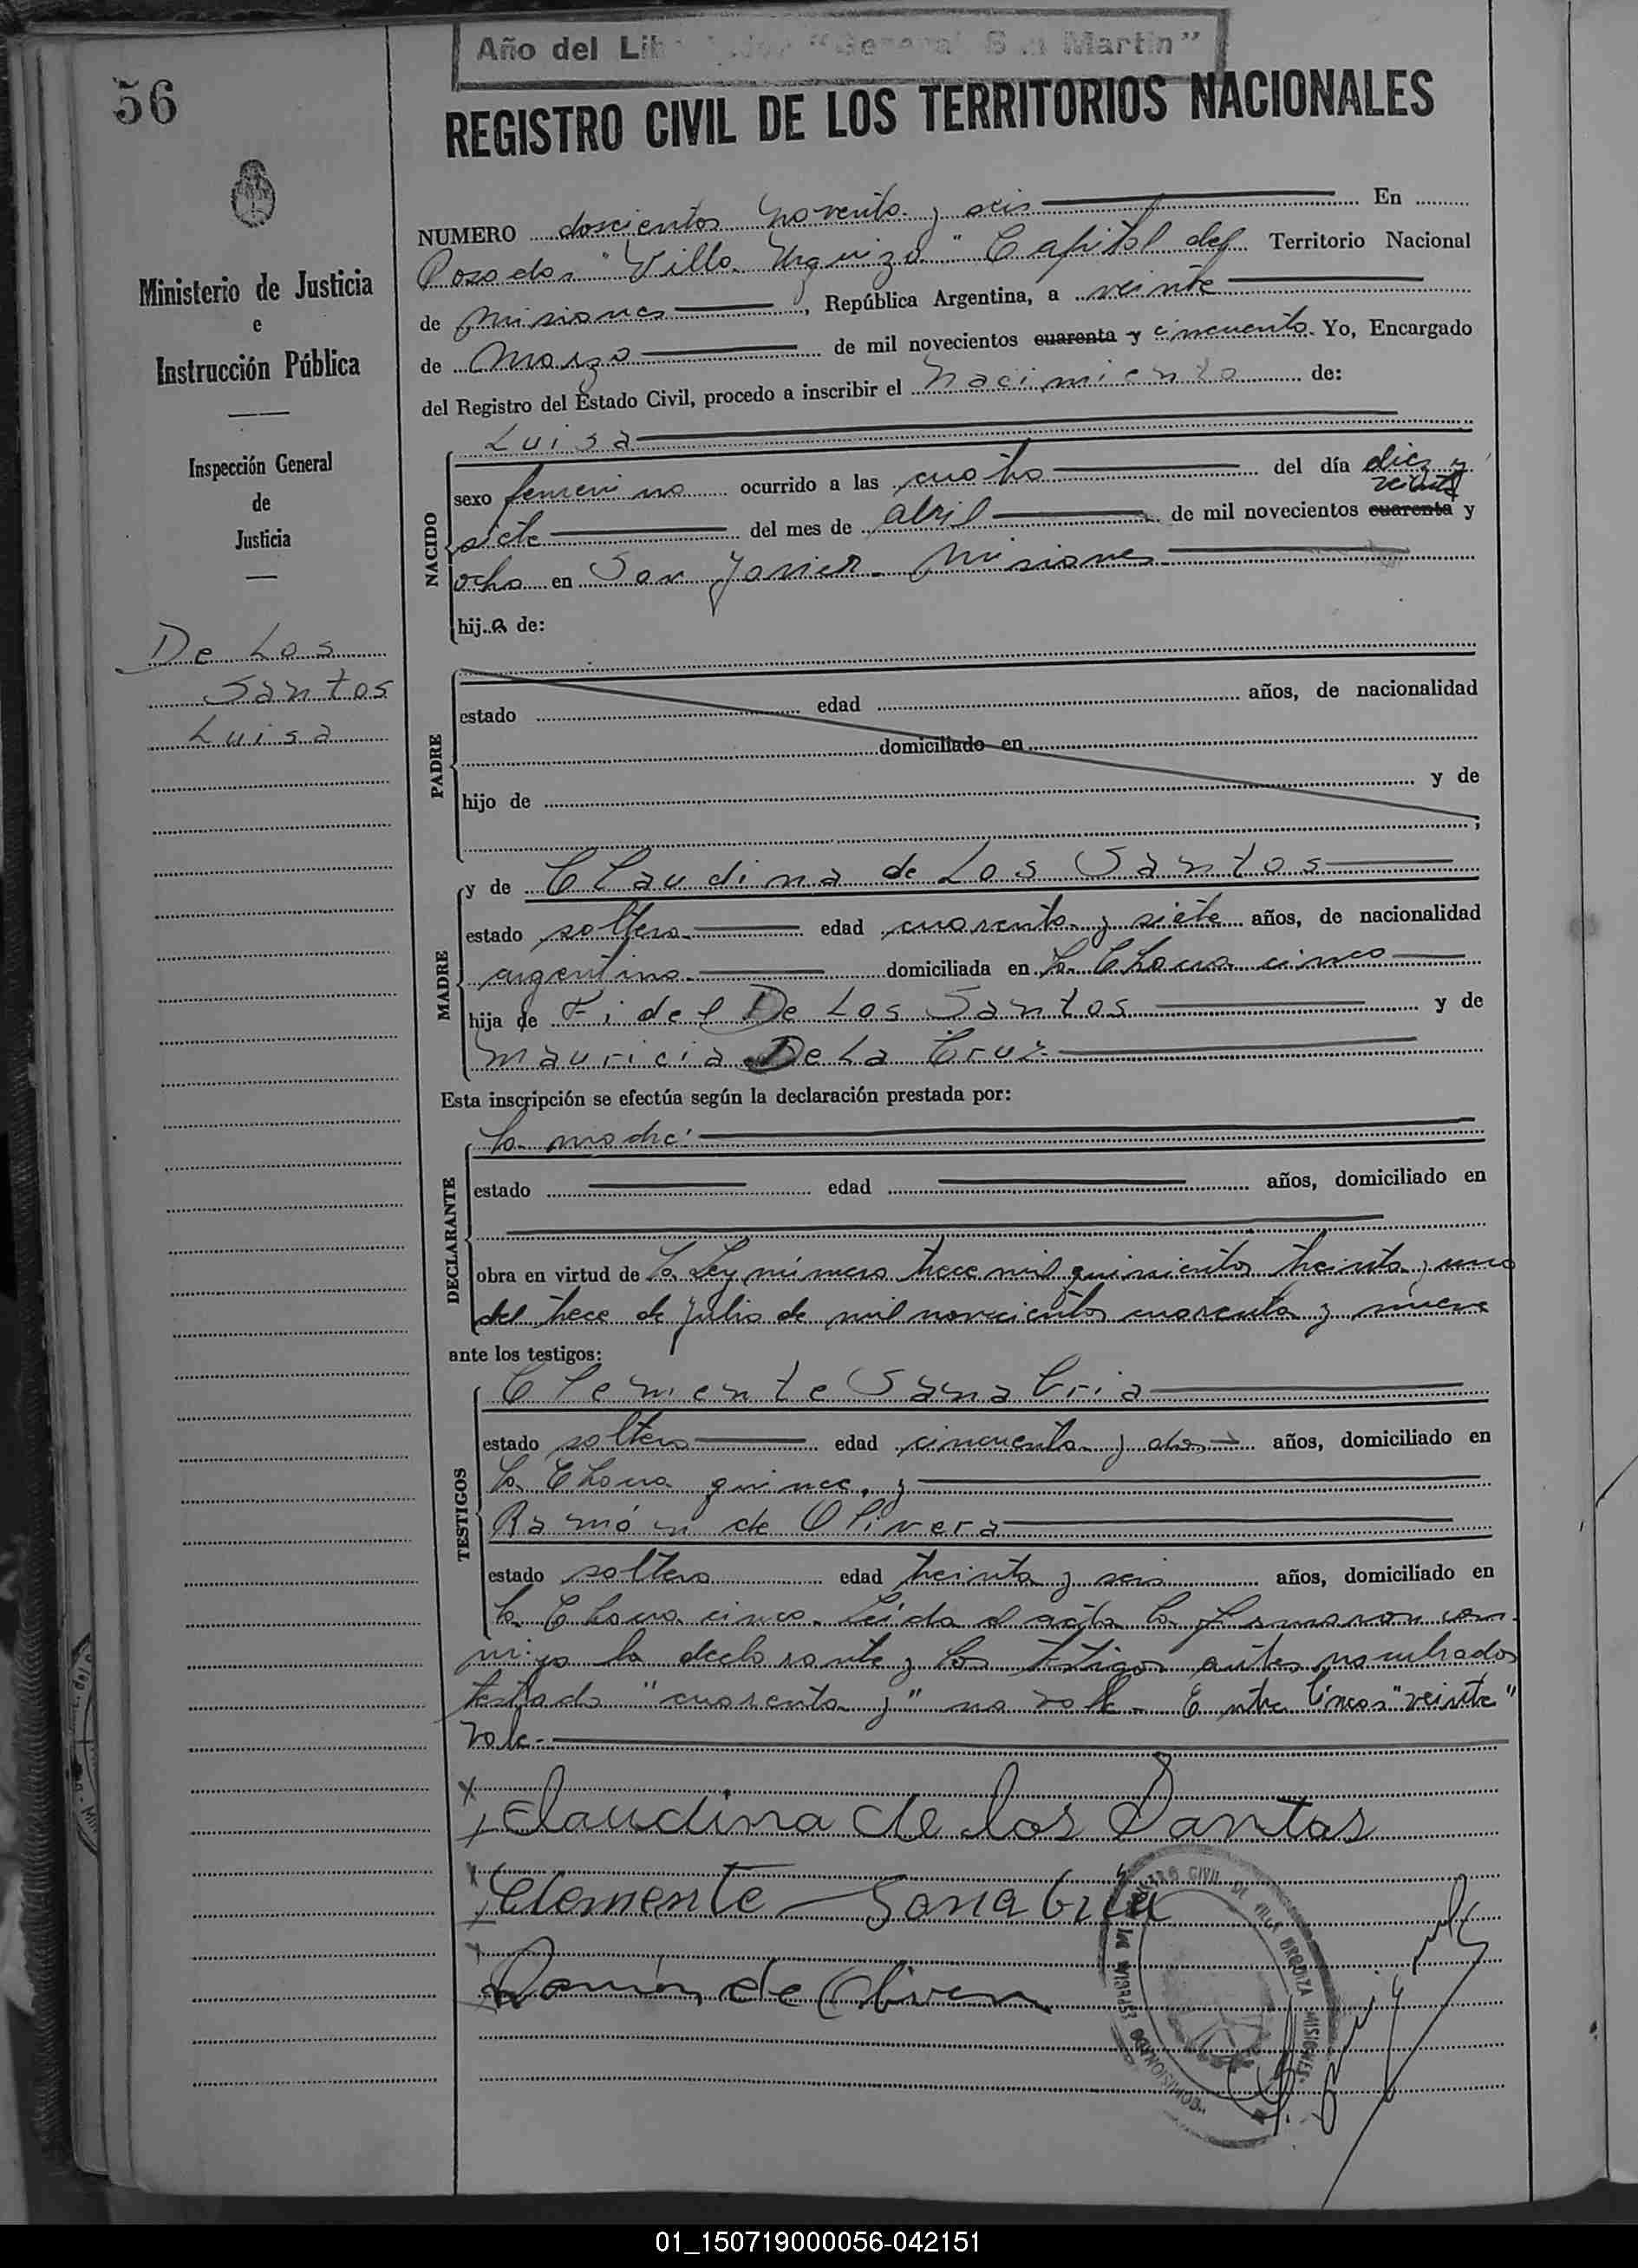 Año del Libertador "General San Martin"
56
REGISTRO CIVIL DE LOS TERRITORIOS NACIONALES
Ministerio de Justicia
e
Instrucción Pública
Inspección General
de
Justicia
De Los
Santos
Luisa
NUMERO doscientos noventa y seis En
Posadas "Villa Urquiza" Capital del Territorio Nacional
de Misiones, República Argentina, a veinte
de Marzo de mil novecientos cuarenta y cincuenta. Yo, Encargado
del Registro del Estado Civil, procedo a inscribir el nacimiento de:
NACIDO
Luisa
sexo femenino ocurrido a las cuatro del día diez y
veinte
siete del mes de abril de mil novecientos cuarenta y
ocho en San Javier - Misiones
hija de:
PADRE
estado edad años, de nacionalidad
domiciliado en
hijo de y de
;
MADRE
y de Claudina de Los Santos
estado soltera edad cuarenta y siete años, de nacionalidad
argentina domiciliada en la Chacra cinco
hija de Fidel De Los Santos y de
Mauricia De La Cruz
Esta inscripción se efectúa según la declaración prestada por:
DECLARANTE
la madre
estado edad años, domiciliado en
obra en virtud de la Ley número trece mil quinientos treinta y uno
del trece de julio de mil novecientos cuarenta y nueve
ante los testigos:
TESTIGOS
Clemente Sanabria
estado soltero edad cincuenta y dos años, domiciliado en
la Chacra quince, y
Ramón de Olivera
estado soltero edad treinta y seis años, domiciliado en
la Chacra cinco. Leída el acta la firmaron con-
migo la declarante y los testigos antes nombrados
testado "cuarenta y" no vale - Entre líneas "veinte"
vale.
Claudina de los Santos
Clemente Sanabria
Ramón de Oliver
REGISTRO CIVIL DE VILLA URQUIZA MISIONES
01_150719000056-042151